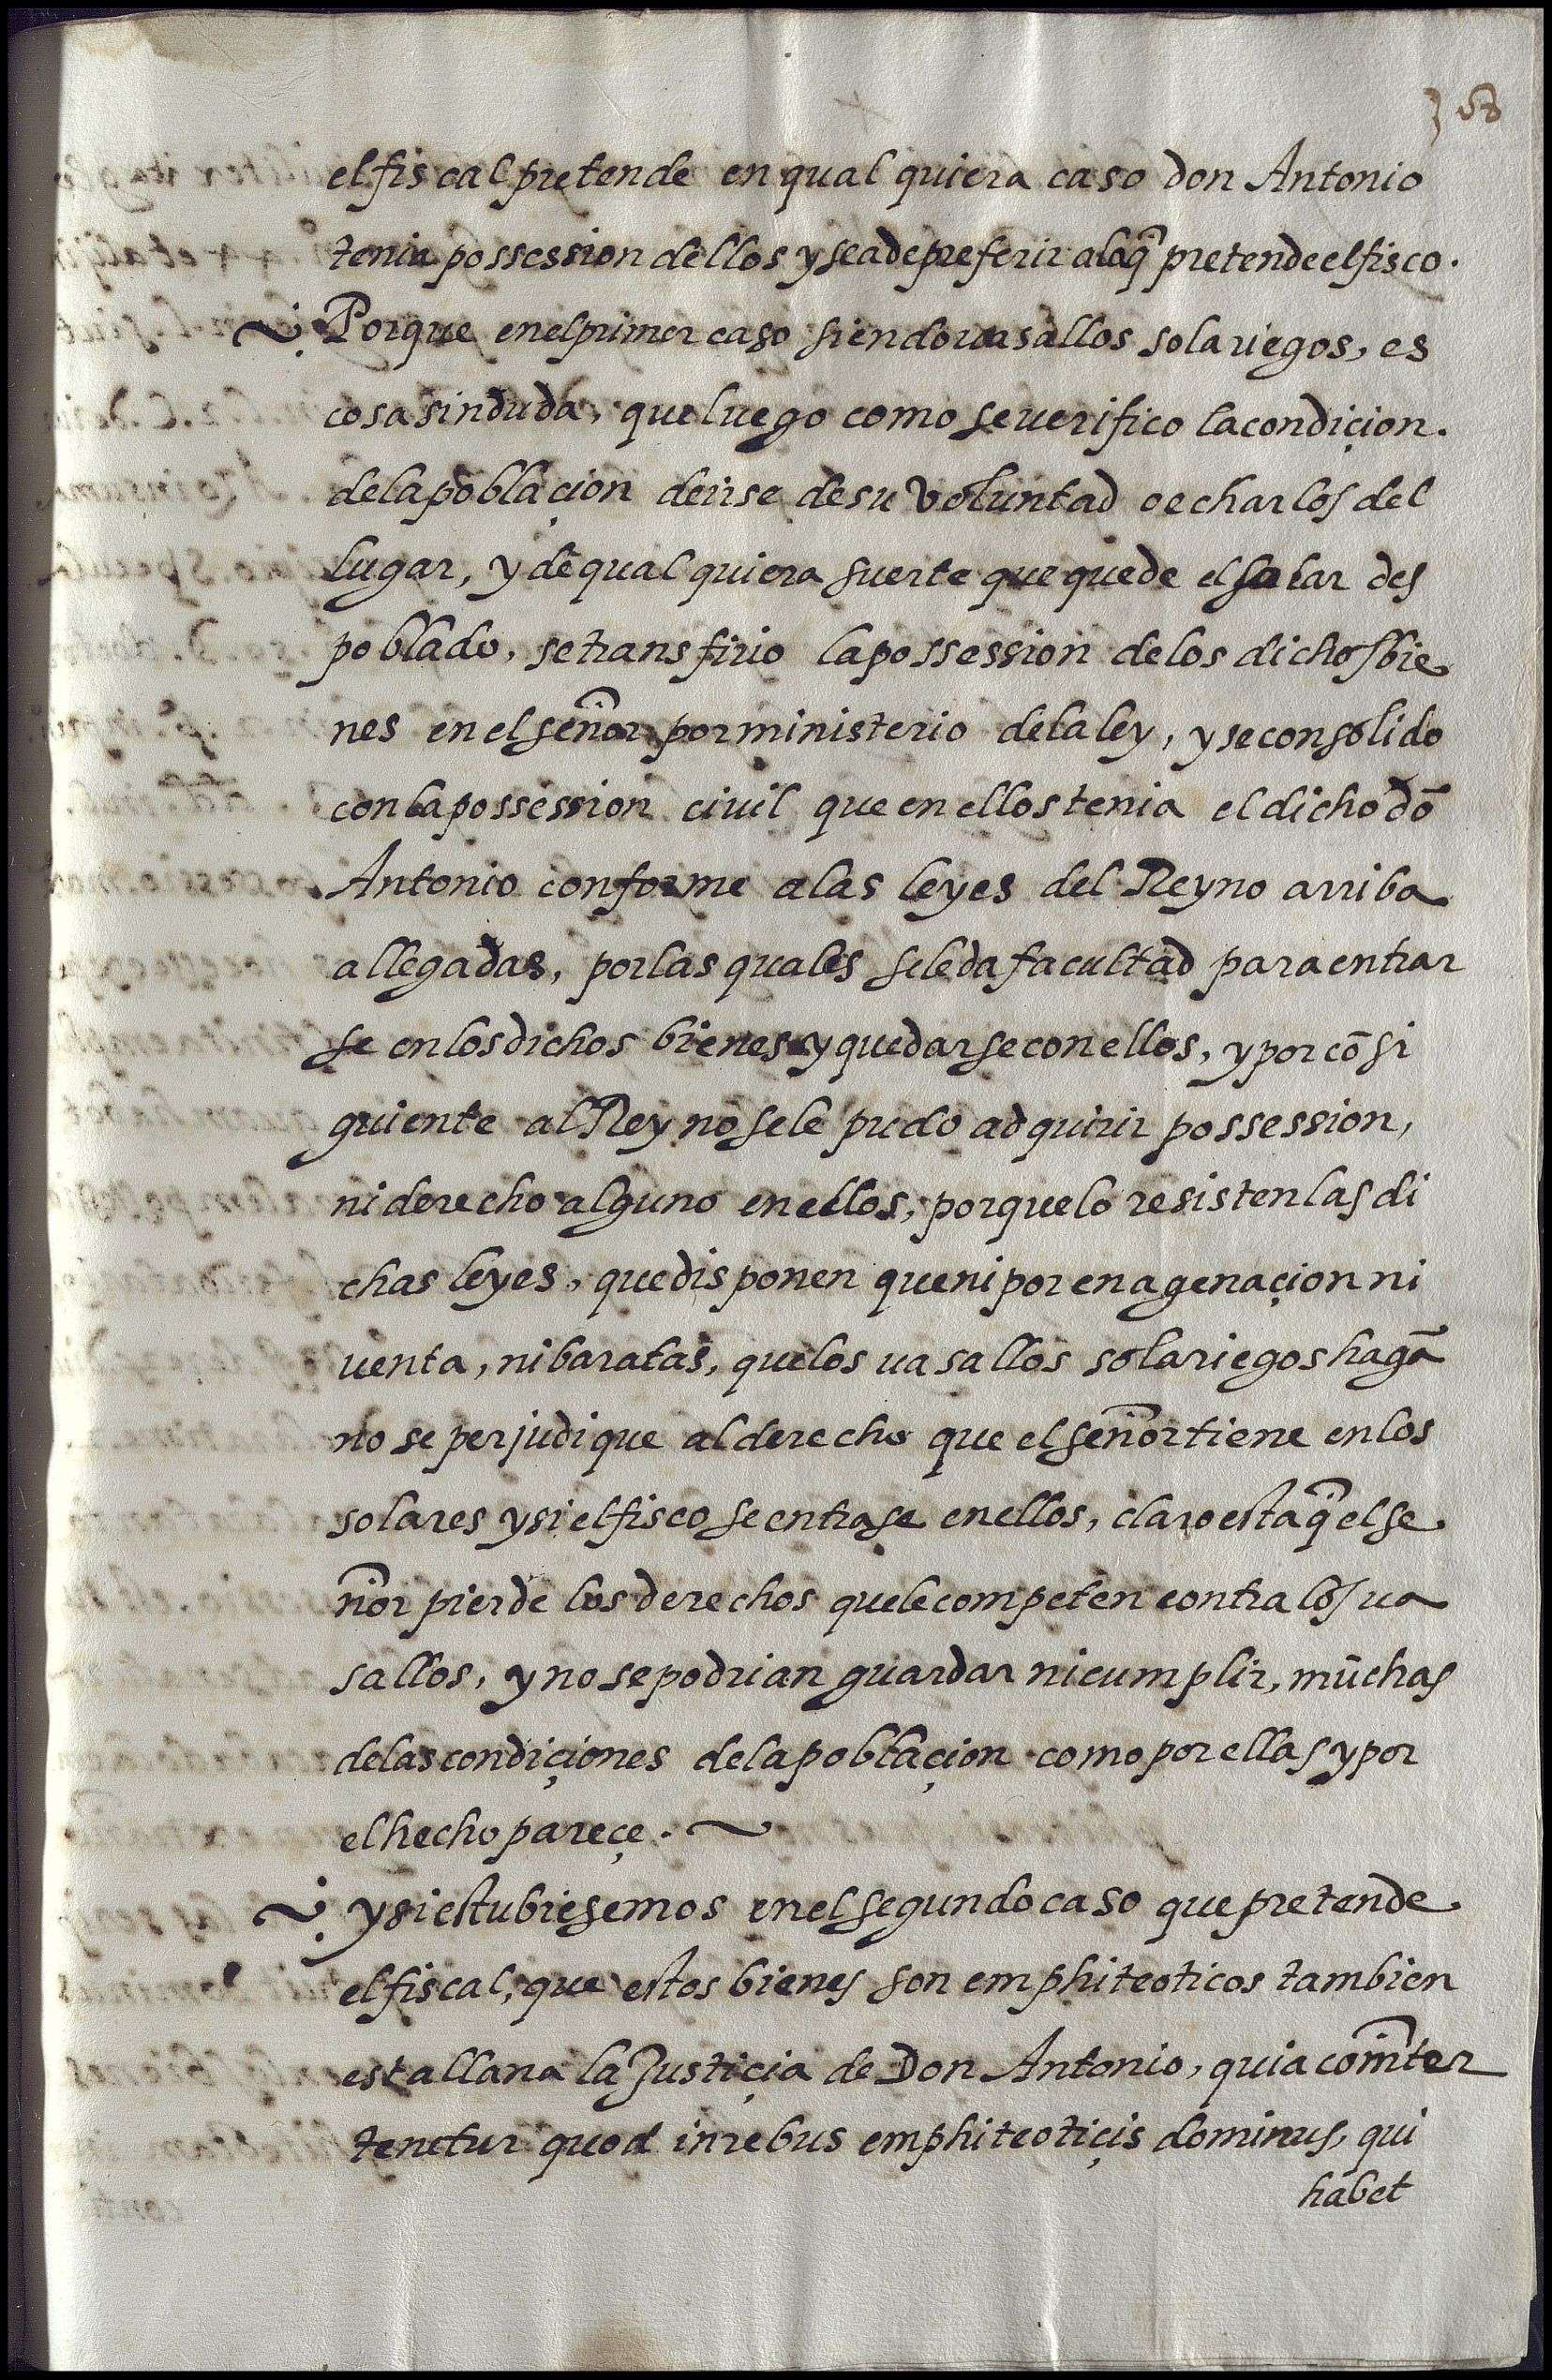 358
el fiscal pretende en qual quiera caso don Antonio
tenia possession dellos y se a de preferir a la q̃ pretende el fisco.
Porque en el primer caso siendo uasallos solariegos, es
cosa sin duda, que luego como se uerifico la condiçion.
de la poblaçion de irse de su voluntad o echarlos del
lugar, y de qual quiera suerte que quede el solar des
poblado, se transfirio la possession de los dichos bie
nes en el señor por ministerio de la ley, y se consolido
con la possession ciuil que en ellos tenia el dicho dõ
Antonio conforme a las leyes del Reyno arriba
allegadas, por las quales se le da facultad para entrar
se en los dichos bienes y quedarse con ellos, y por cõsi
guiente al Rey no se le pudo adquirir possession,
ni derecho alguno en ellos, porque lo resisten las di
chas leyes, que disponen que ni por enagenaçion ni
uenta, ni baratas, que los uasallos solariegos hagã
no se perjudique al derecho que el señor tiene en los
solares y si el fisco se entrase en ellos, claro esta q̃ el se
ñor pierde los derechos que le competen contra los ua
sallos, y no se podrian guardar ni cumplir, muchas
de las condiçiones de la poblaçion como por ellas y por
el hecho pareçe.
y si estubiesemos en el segundo caso que pretende
el fiscal, que estos bienes son emphiteoticos tambien
esta llana la Justiçia de Don Antonio, quia com̃iter
tenetur quod in rebus emphiteotiçis dominus, qui
habet